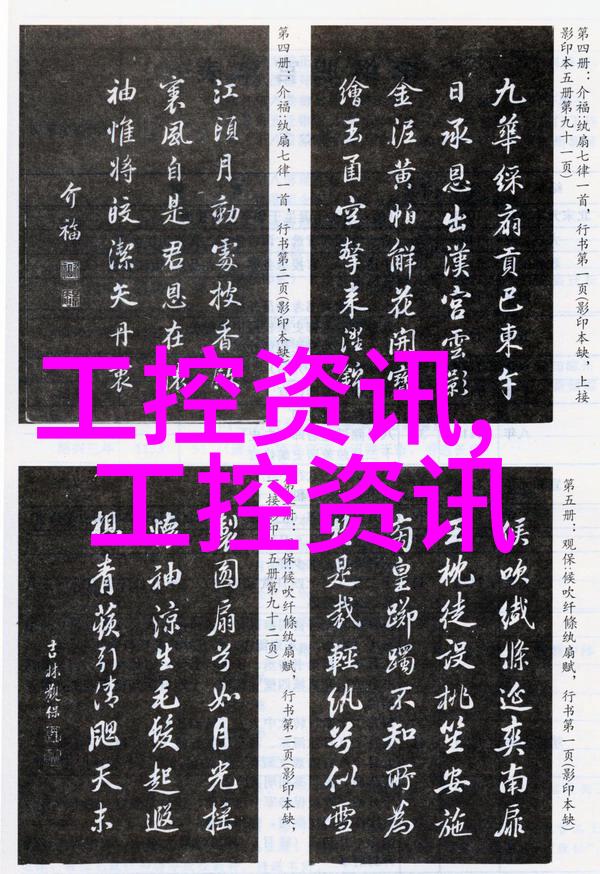 第四册：介福：纨扇七律一首，行书第一页（影印本缺），上接
影印本五册第九十一页）
九華綵扇貢巴東午
日承恩出漢宮雲影
金泥黃帕解花開寶
繪玉函空擎来灃錦
第四册：介福：纨扇七律一首，行书第二页（影印本缺）
江頭月動處披香
裏風自是君恩在
袖惟将皎潔矢丹裏
介福
工控资讯，
工控资讯
第五册：观保：候吹纤絛纨扇赋，行书第一页（影印本缺）
候吹纖絛延爽南扉
王枕徒設桃笙安施
南皇躑躅不知所為
是裁輕纨兮似雪
保：候吹纤絛纨扇赋，行书第二页（影印本缺，
接影印 五册第九十二页）
製圆扇兮如月光摇
懷袖涼生毛髮起遐
想青蘋引清颸天末
吉林觀保